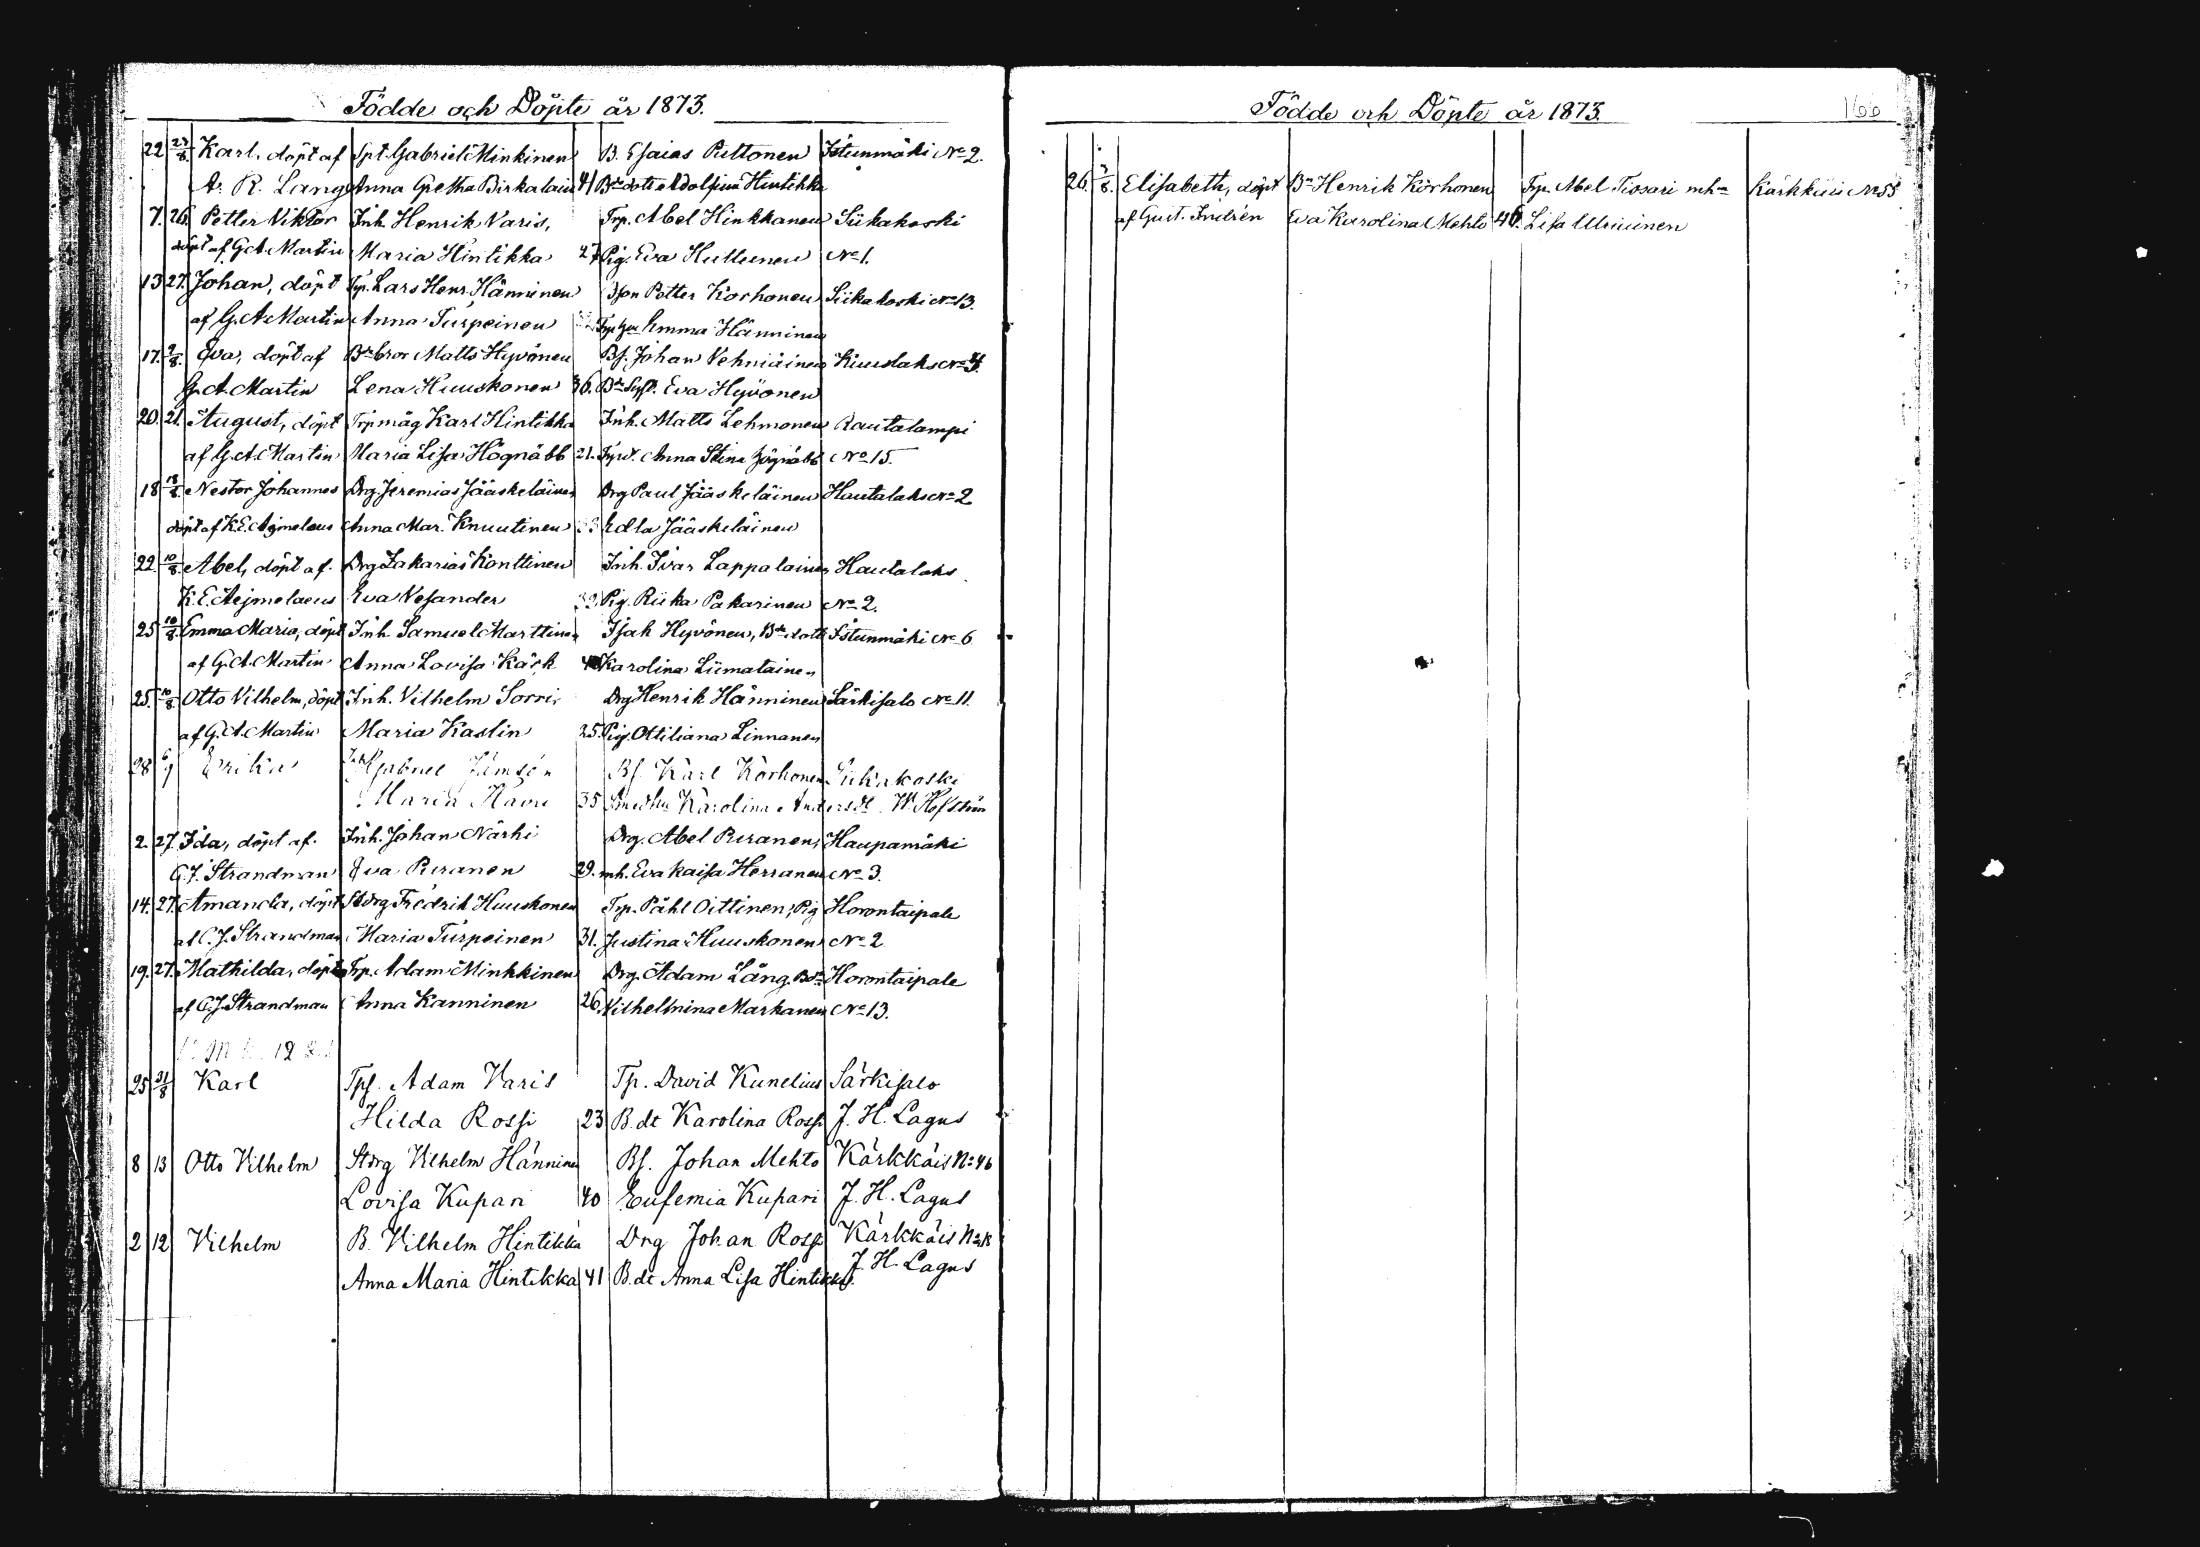 Födde och Döpte år 1873.
22 27/8. Karl, döpt af Spt. Gabriel Minkinen B. Esaias Puttonen Istunmäki No 2.
A. R. Lang Anna Gretha Pirkalain 41 Bde dott. Adolfina Hintikka
7. 26. Petter Viktor Inh. Henrik Varis, Trp. Abel Hinkkanen Siikakoski
döpt af G. A. Martin Maria Hintikka 27. Pig. Eva Huttunen No 1.
13 27. Johan, döpt Trp. Lars Henr. Hänninen Bson Petter Korhonen Siikakoski No 13.
af G. A. Martin Anna Turpeinen Emma Hänninen
17. 9/8. Eva, döpt af Bde bror Matts Hyvönen Bs. Johan Vehniäinen Kiuslaks No 4.
G. A. Martin Lena Huuskonen 36. Bde Syst. Eva Hyvönen
20. 21. August, döpt Trp måg Karl Hintikka Inh. Matts Lehmonen Rautalampi
af G. A. Martin Maria Lisa Högnäbb 21. Trpd. Anna Stina Högnäbb No 15.
18 18/8. Nestor Johannes Drg Jeremias Jääskeläinen Drg Paul Jääskeläinen Hautalaks No 2
döpt af K. E. Aejmelaeus Anna Mar. Knuutinen Edla Jääskeläinen
22 10/8. Abel, döpt af Drg Zakarias Konttinen Inh. Ivar Lappalainen Hautalaks
K. E. Aejmelaeus Eva Vesander Pig. Riika Pakarinen No 2.
25 10/8. Emma Maria, döpt Inh. Samuel Marttinen Isak Hyvönen, Bde dott. Istunmäki No 6
af G. A. Martin Anna Lovisa Käck Karolina Liimatainen
25. 10/8. Otto Vilhelm, döpt Inh. Vilhelm Sorri Drg Henrik Hänninen Särkisalo No 11.
af G. A. Martin Maria Kaslin 25. Pig. Ottiliana Linnanen
28 Erika Gabriel Jämsén Bs. Karl Korhonen Siikakoski
Maria Havu 35 Karolina Andersdt. W. Hofström
2. 27. Ida, döpt af Inh. Johan Närhi Drg. Abel Puranen, Haupamäki
C. J. Strandman Eva Puranen 29. mh. Eva Kaisa Herranen No 3.
14. 27. Amanda, döpt Stdrg Fredrik Huuskonen Trp. Påhl Oittinen, Pig Horontaipale
af C. J. Strandman Maria Turpeinen 31. Justina Huuskonen No 2
19. 27. Mathilda, döpt Trp. Adam Minkkinen Drg. Adam Lång, Bde Horontaipale
af C. J. Strandman Anna Kanninen 26. Vilhelmina Markanen No 13.
25 31/8 Karl Tps. Adam Varis Tp. David Kunelius Särkisalo
Hilda Rossi 23 B. dt Karolina Rossi J. H. Lagus
8 13 Otto Vilhelm Stdrg Vilhelm Hänninen Bs. Johan Mehto Kärkkäis No 46
Lovisa Kupari 40 Eufemia Kupari J. H. Lagus
2 12 Vilhelm B. Vilhelm Hintikka Drg Johan Rossi Kärkkäis No 18
Anna Maria Hintikka 41 B. dt Anna Lisa Hintikka J. H. Lagus
Födde och Döpte år 1873.
166
26. 3/8. Elisabeth, döpt Bde Henrik Korhonen Trp. Abel Tiosari mh Kärkkäis No 55
af Gust. Indrén Eva Karolina Mehto 46. Lisa